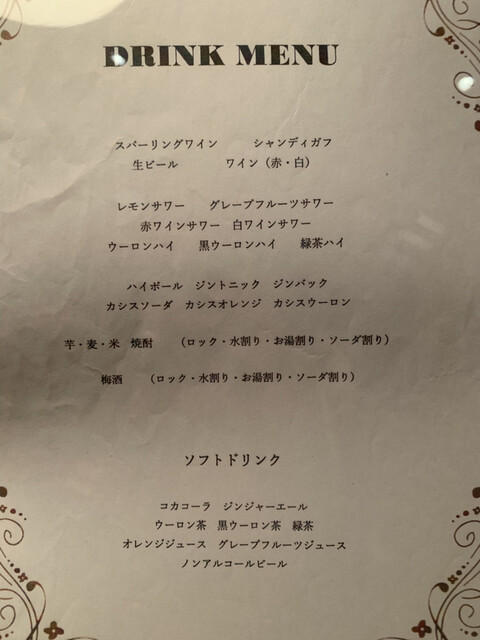 DRINK MENU
スパーリングワイン　シャンディガフ
生ビール　ワイン（赤・白）
レモンサワー　グレープフルーツサワー
赤ワインサワー　白ワインサワー
ウーロンハイ　黒ウーロンハイ　緑茶ハイ
ハイボール　ジントニック　ジンバック
カシスソーダ　カシスオレンジ　カシスウーロン
芋・麦・米　焼酎　（ロック・水割り・お湯割り・ソーダ割り）
梅酒　（ロック・水割り・お湯割り・ソーダ割り）
ソフトドリンク
コカコーラ　ジンジャーエール
ウーロン茶　黒ウーロン茶　緑茶
オレンジジュース　グレープフルーツジュース
ノンアルコールビール